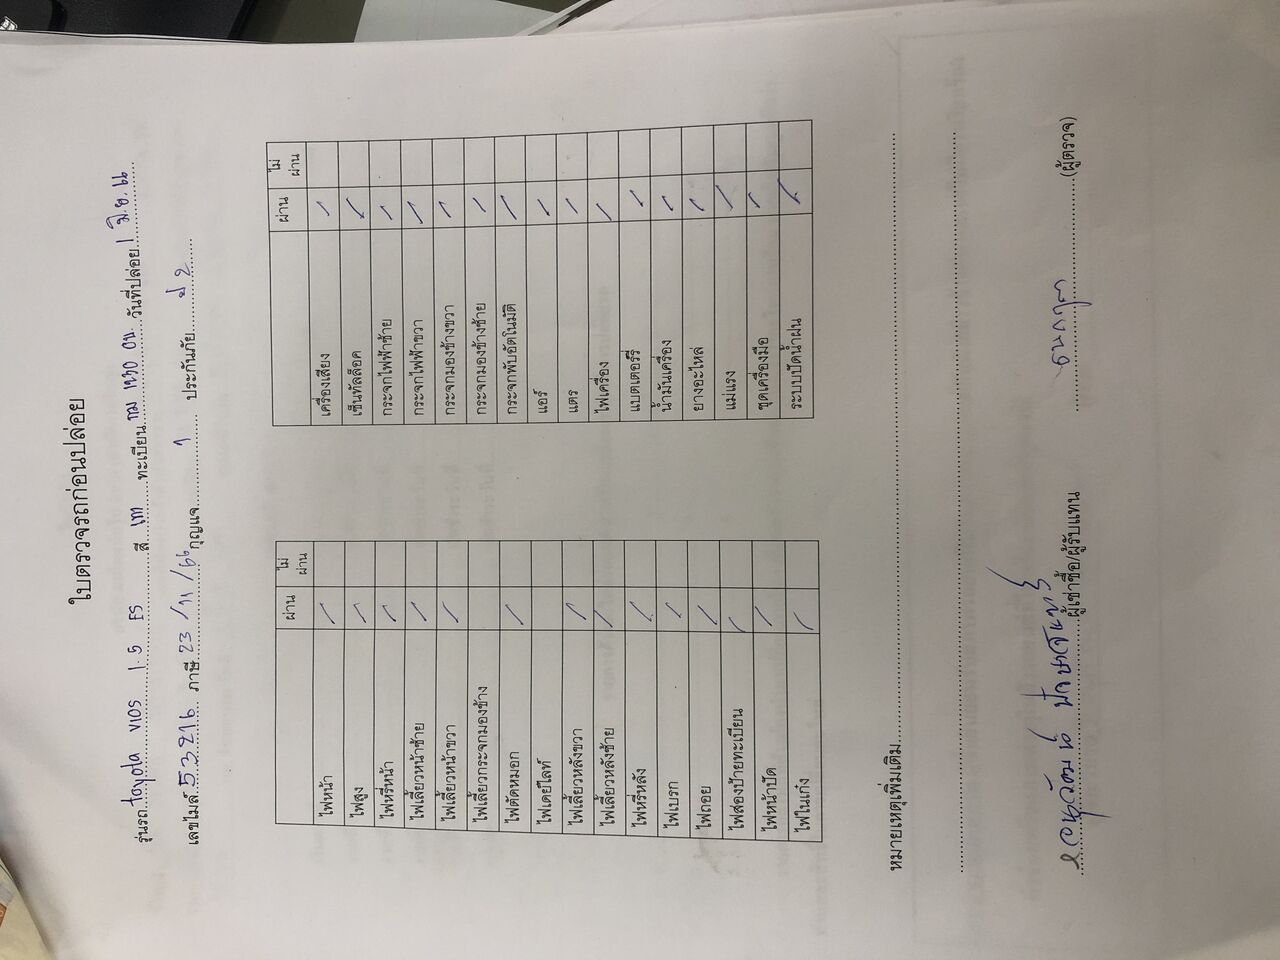 ใบตรวจรถก่อนปล่อย
รุ่นรถ toyota VIOS 1.5 ES สี เทา ทะเบียน กม 1230 ทะเบียน วันที่ปล่อย 1 มิ.ย.
เลขไมล์ 53216 ภาษี 23/11/66 กุญแจ 1 ประกันภัย ป 2
ผ่าน ไม่ผ่าน
ไฟหน้า /
ไฟสูง /
ไฟหรี่หน้า /
ไฟเลี้ยวหน้าซ้าย /
ไฟเลี้ยวหน้าขวา /
ไฟเลี้ยวกระจกมองข้าง
ไฟตัดหมอก /
ไฟเดย์ไลท์
ไฟเลี้ยวหลังขวา /
ไฟเลี้ยวหลังซ้าย /
ไฟหรี่หลัง /
ไฟเบรก /
ไฟถอย /
ไฟส่องป้ายทะเบียน /
ไฟหน้าปัด /
ไฟในเก๋ง /
ผ่าน ไม่ผ่าน
เครื่องเสียง /
เซ็นทัลล็อค /
กระจกไฟฟ้าซ้าย /
กระจกไฟฟ้าขวา /
กระจกมองข้างขวา /
กระจกมองข้างซ้าย /
กระจกพับอัตโนมัติ /
แอร์ /
แตร /
ไฟเครื่อง /
แบตเตอรี่ /
น้ำมันเครื่อง /
ยางอะไหล่ /
แม่แรง /
ชุดเครื่องมือ /
ระบบปัดน้ำฝน /
หมายเหตุเพิ่มเติม
ผู้เช่าซื้อ/ผู้รับแทน
(ผู้ตรวจ)